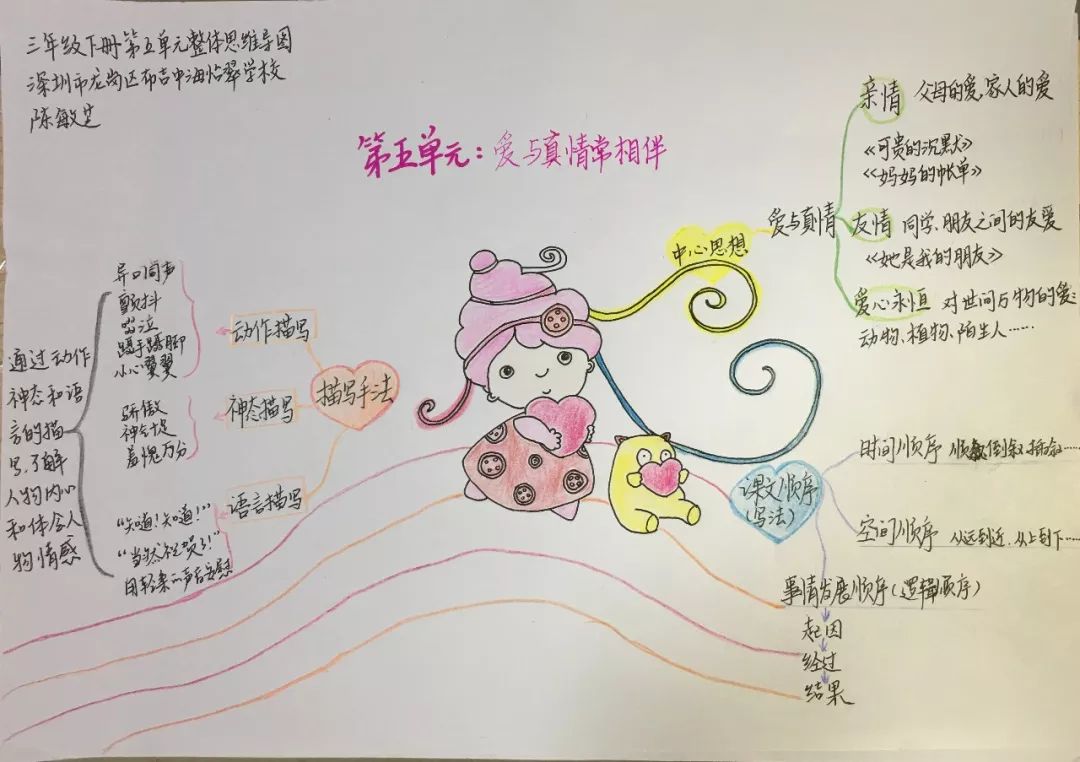 三年级下册第五单元整体思维导图
深圳市龙岗区布吉中海怡翠学校
陈敏芝
第五单元：爱与真情常相伴
中心思想
爱与真情
亲情 父母的爱、家人的爱
《可贵的沉默》
《妈妈的帐单》
友情 同学、朋友之间的友爱
《她是我的朋友》
爱心永恒 对世间万物的爱：
动物、植物、陌生人……
描写手法
动作描写
异口同声
颤抖
啜泣
蹑手蹑脚
小心翼翼
神态描写
骄傲
神气十足
羞愧万分
语言描写
“知道！知道！”
“当然祝贺了！”
用轻柔的声音安慰
通过动作
神态和语
言的描
写，了解
人物内心
和体会人
物情感
课文顺序
（写法）
时间顺序 顺叙 倒叙 插叙……
空间顺序 从远到近、从上到下……
事情发展顺序（逻辑顺序）
起因
经过
结果